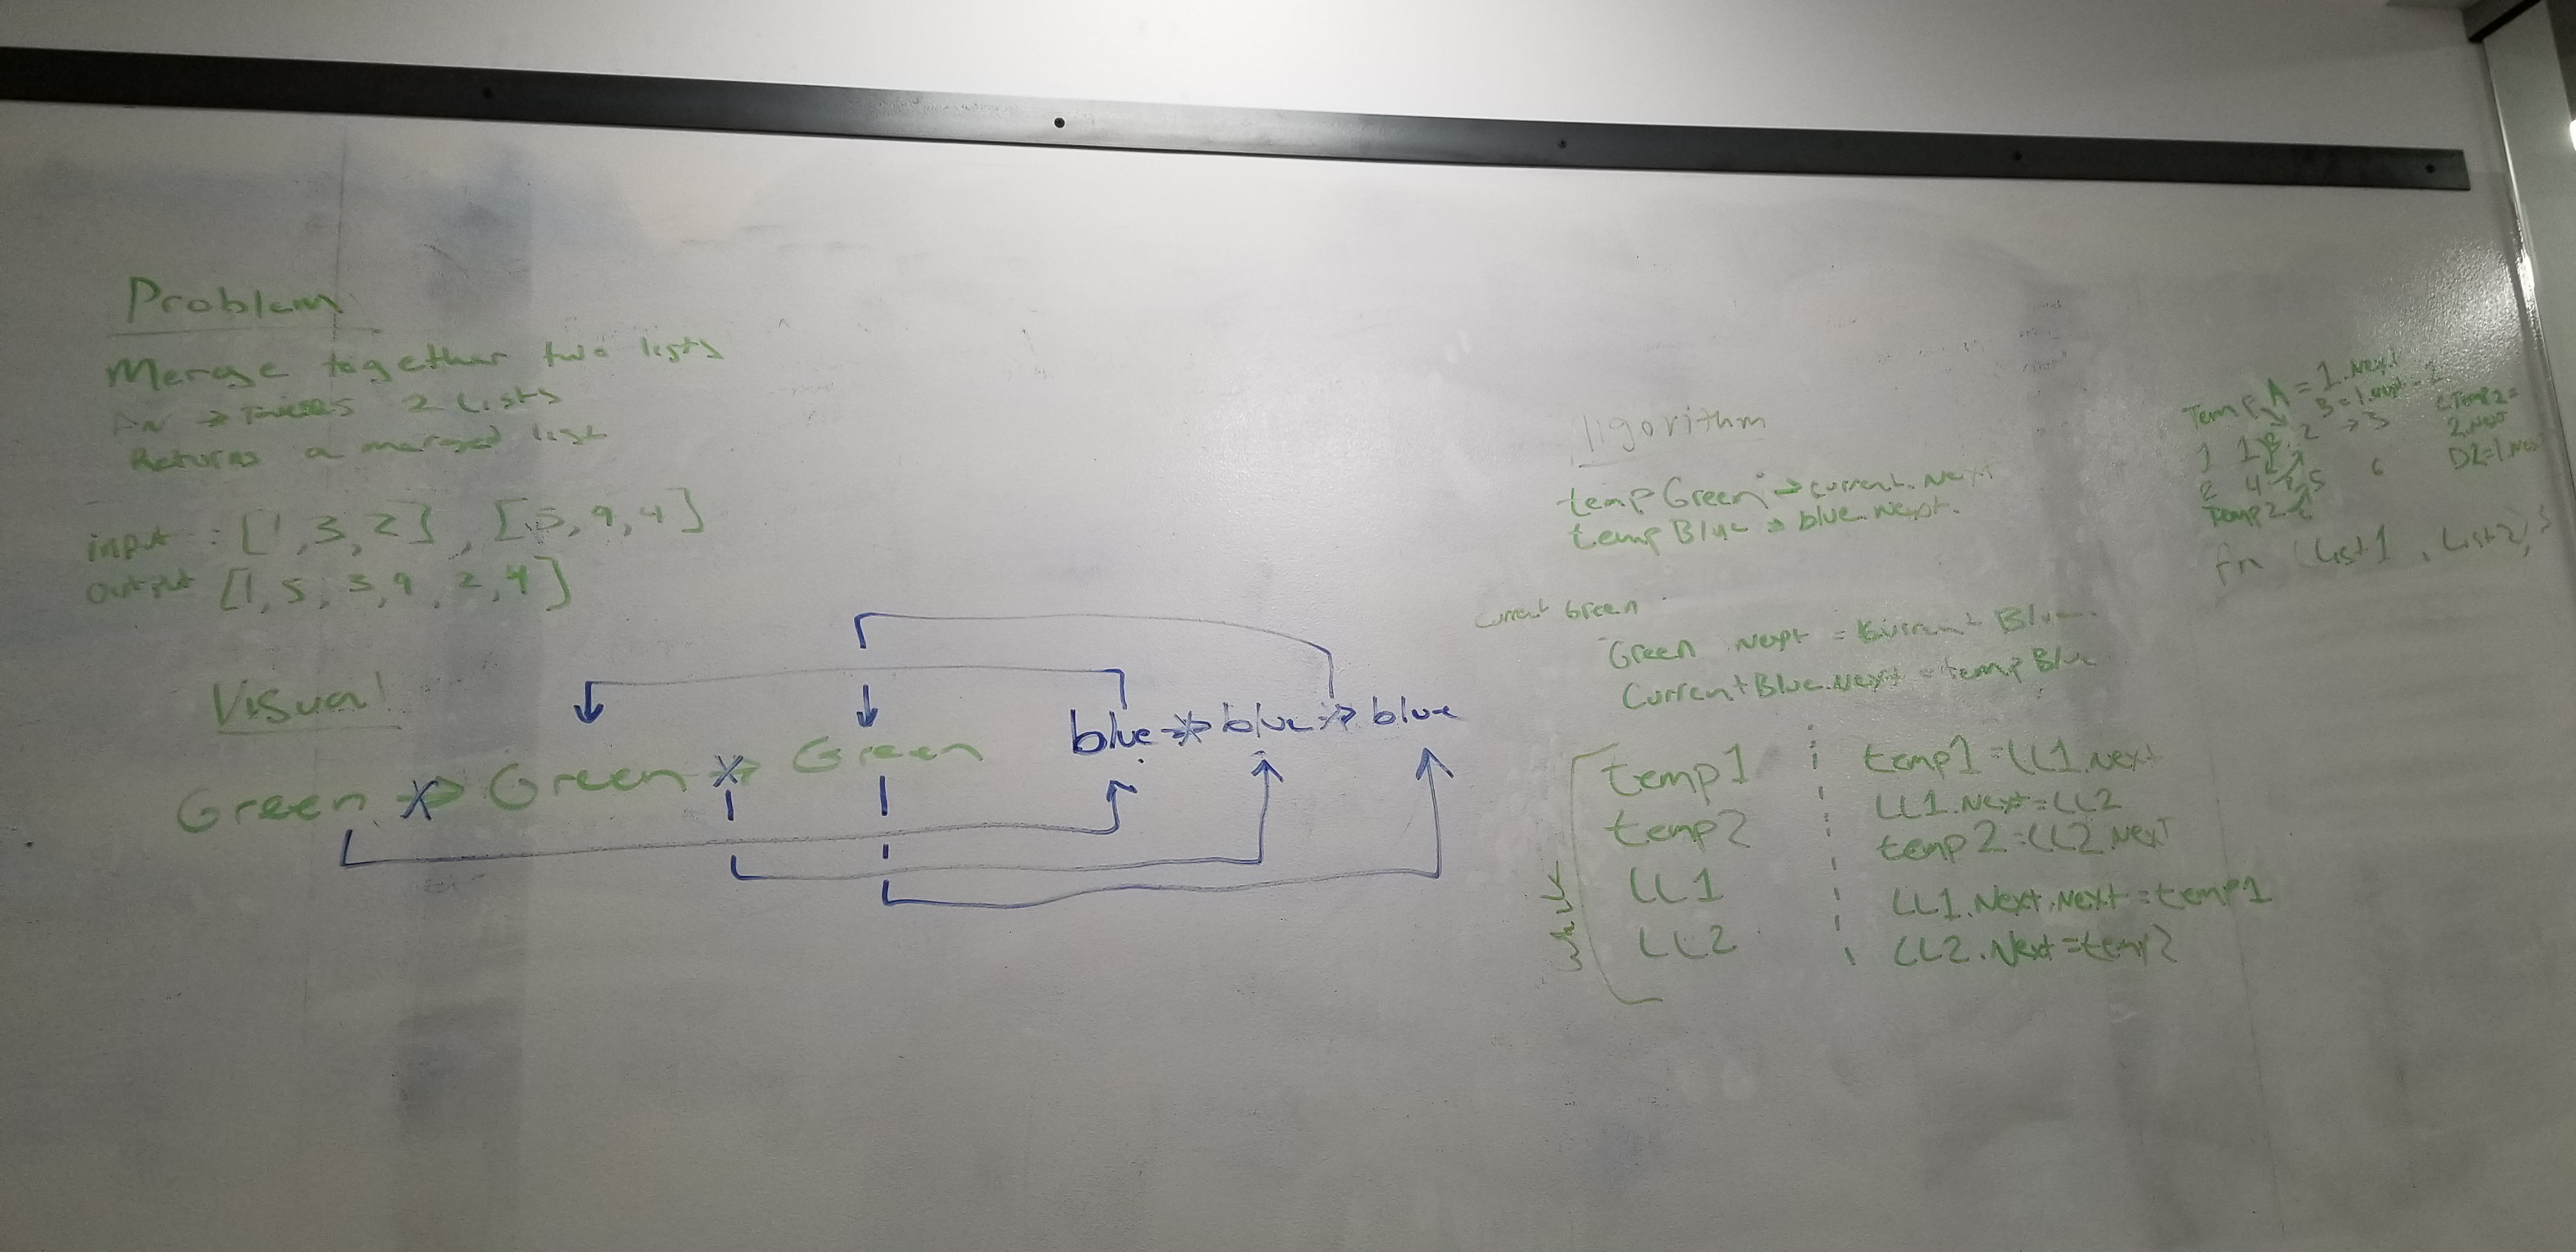 Problem
Merge together two lists
FN → Takes 2 Lists
Returns a merged list
input : [1,3,2] , [5,9,4]
output [1,5,3,9,2,4]
Visual
Green → Green → Green
blue → blue → blue
lgorithm
temp Green → current.Next
temp Blue → blue.Next.
current Green
Green Next = Current Blue
Current Blue.Next = temp Blue
walk
temp1
temp2
LL1
LL2
temp1=LL1.Next
LL1.Next=LL2
temp2=LL2.Next
LL1.Next.Next=temp1
LL2.Next=temp2
Temp A = 1.Next
Temp2=
2.Next
Temp2
fn (List1, List2)